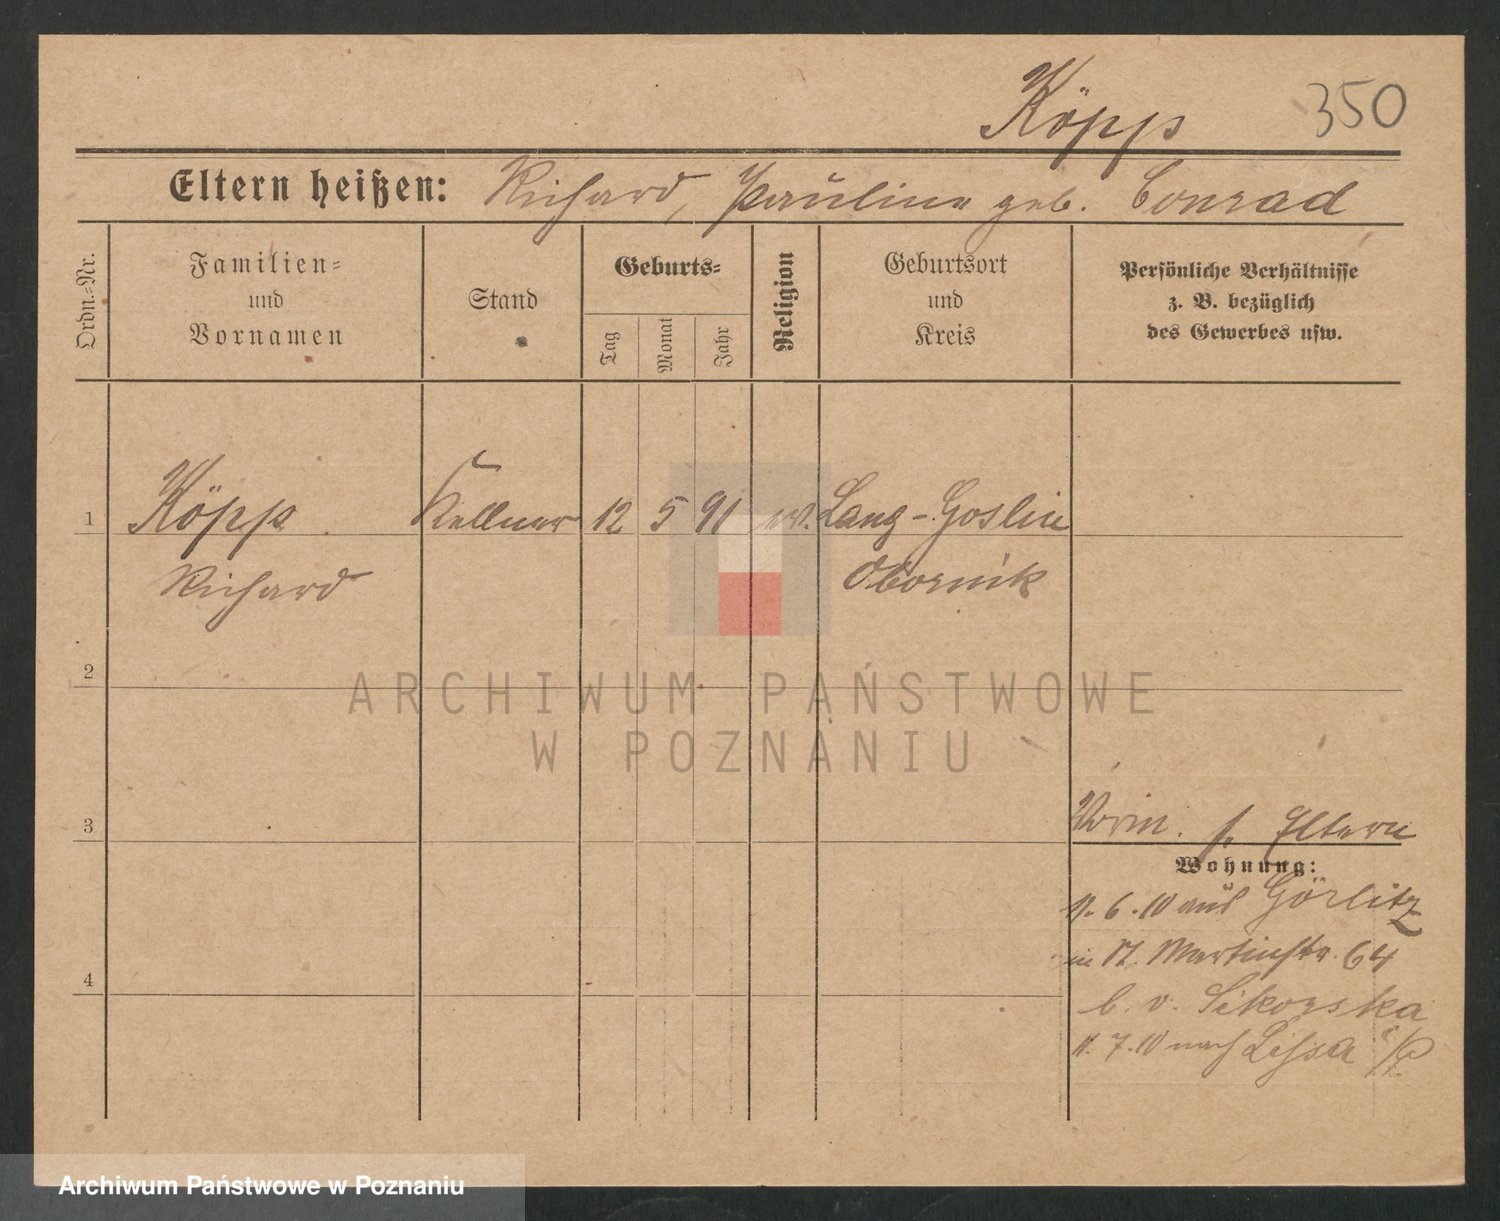 Köpp 350
Eltern heißen: Richard, Pauline geb. Conrad
Ordn.=Nr.
Familien=
und
Vornamen
Stand
Geburts=
Tag
Monat
Jahr
Religion
Geburtsort
und
Kreis
Persönliche Verhältnisse
z. B. bezüglich
des Gewerbes usw.
1 Köpp Kellner 12 5 91 ev. Lang-Goslin
Richard Obornik
2
ARCHIWUM PAŃSTWOWE
W POZNANIU
3
Vorm. s. Eltern
Wohnung:
6.10 aus Görlitz
in St. Martinstr. 64
4
b. v. Sikorska
7.10 nach Lissa i/P
Archiwum Państwowe w Poznaniu